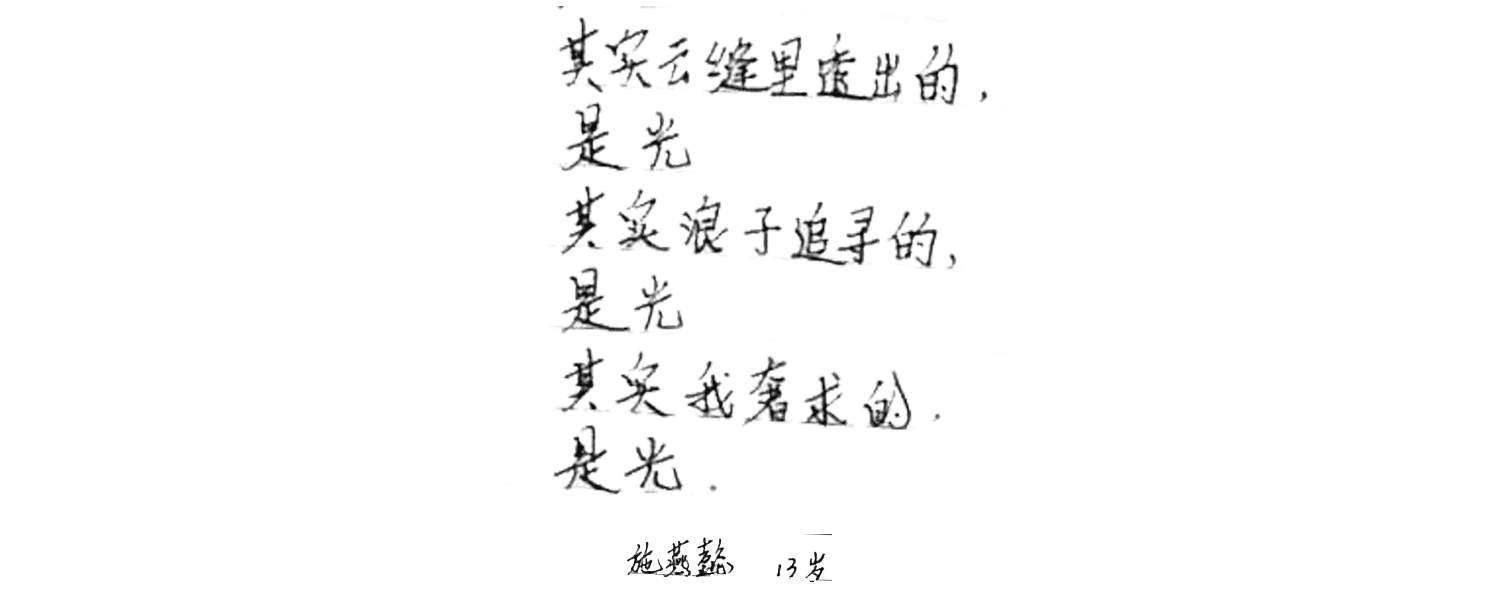 其实云缝里透出的，
是光
其实浪子追寻的，
是光
其实我奢求的，
是光．
施燕懿 13岁